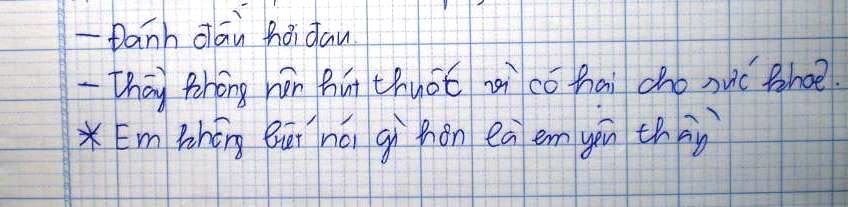 - Đánh dấu hỏi đau.
- Thầy không nên hút thuốt vì có hại cho sức khoẻ.
* Em không biết nói gì hơn là em yên thầy